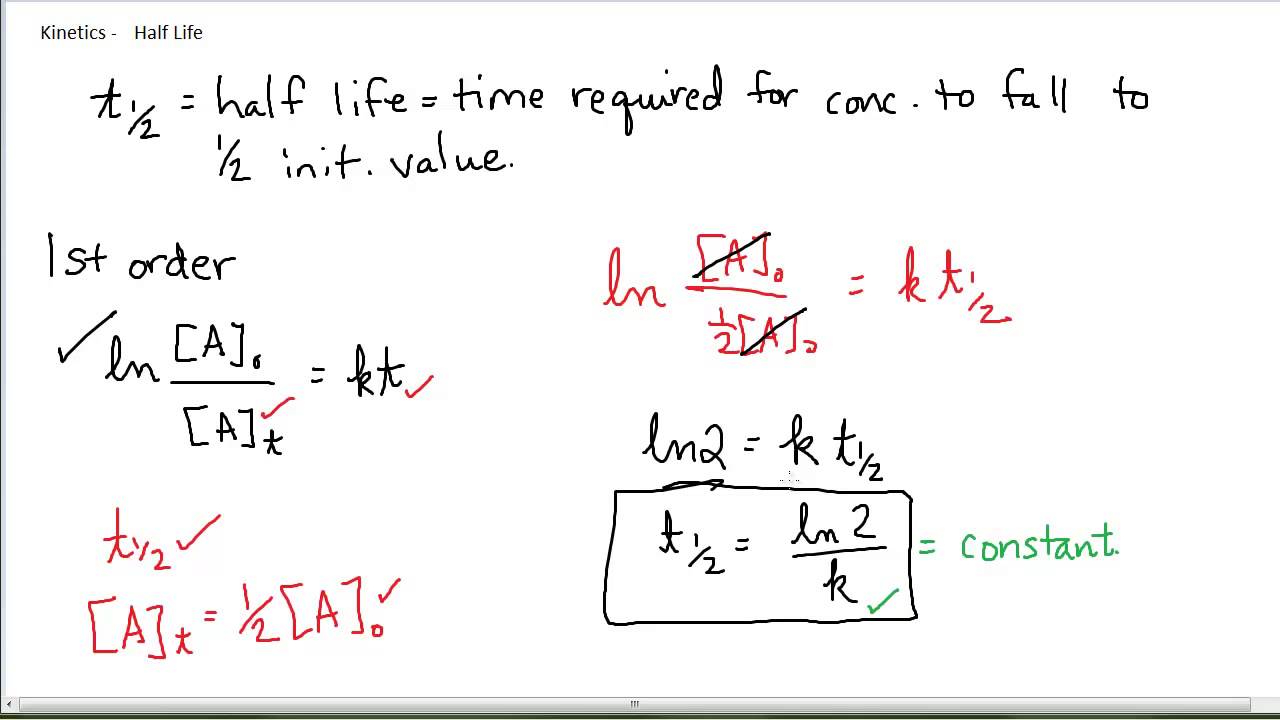 Kinetics - Half Life
t1/2 = half life = time required for conc. to fall to
1/2 init. value.
1st order
ln [A]₀/[A]t = kt
t1/2
[A]t = 1/2 [A]₀
ln [A]₀/(1/2 [A]₀) = k t1/2
ln2 = k t1/2
t1/2 = ln 2/k = constant.